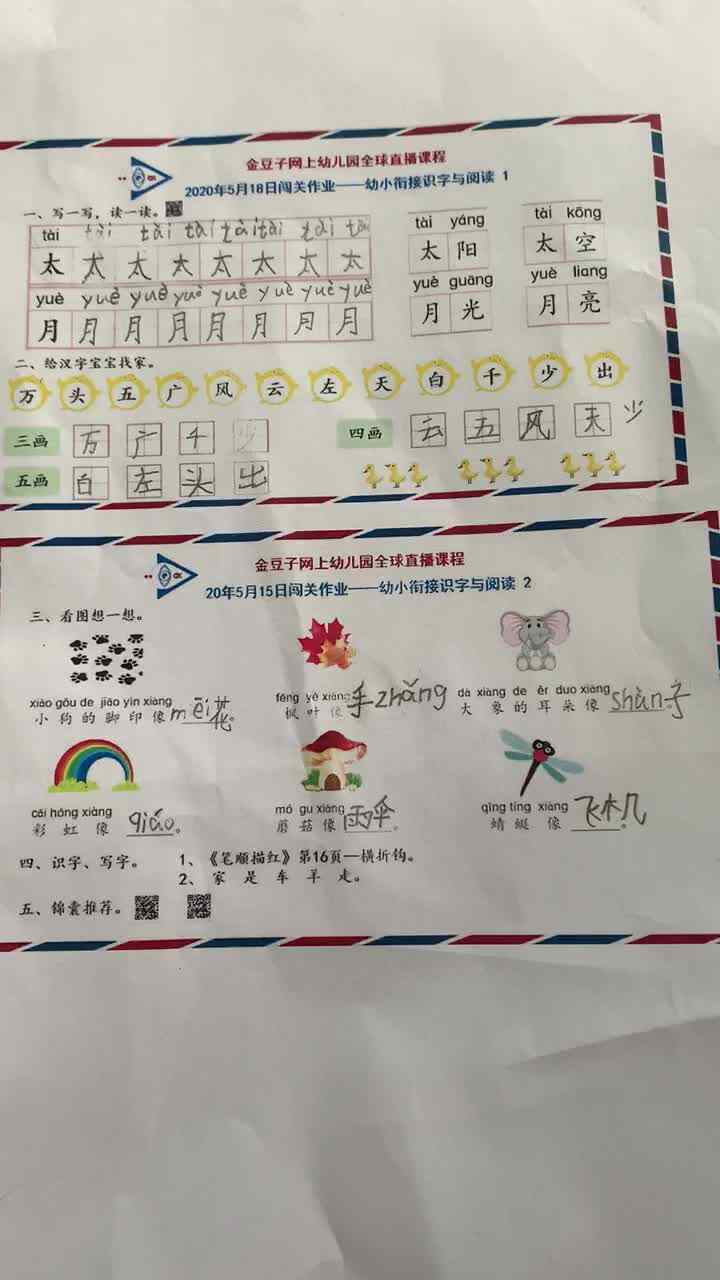 金豆子网上幼儿园全球直播课程
2020年5月18日闯关作业——幼小衔接识字与阅读 1
一、写一写,读一读。
tài tài tài tài tài tài tài tài
太 太 太 太 太 太 太 太
yuè yuè yuè yuè yuè yuè yuè yuè
月 月 月 月 月 月 月 月
tài yáng
太 阳
yuè guāng
月 光
tài kōng
太 空
yuè liang
月 亮
二、给汉字宝宝找家。
万 头 五 广 风 云 左 天 白 千 少 出
三画 万 广 千 少
四画 云 五 风 天 少
五画 白 左 头 出
金豆子网上幼儿园全球直播课程
20年5月15日闯关作业——幼小衔接识字与阅读 2
三、看图想一想。
xiǎo gǒu de jiǎo yìn xiàng
小 狗 的 脚 印 像 méi花。
fēng yè xiàng
枫 叶 像 手zhǎng
dà xiàng de ěr duo xiàng
大 象 的 耳 朵 像 shàn子
cǎi hóng xiàng
彩 虹 像 qiáo。
mó gu xiàng
蘑 菇 像 雨伞。
qīng tíng xiàng
蜻 蜓 像 飞机。
四、识字、写字。 1、《笔顺描红》第16页—横折钩。
2、 家 是 车 羊 走。
五、锦囊推荐。